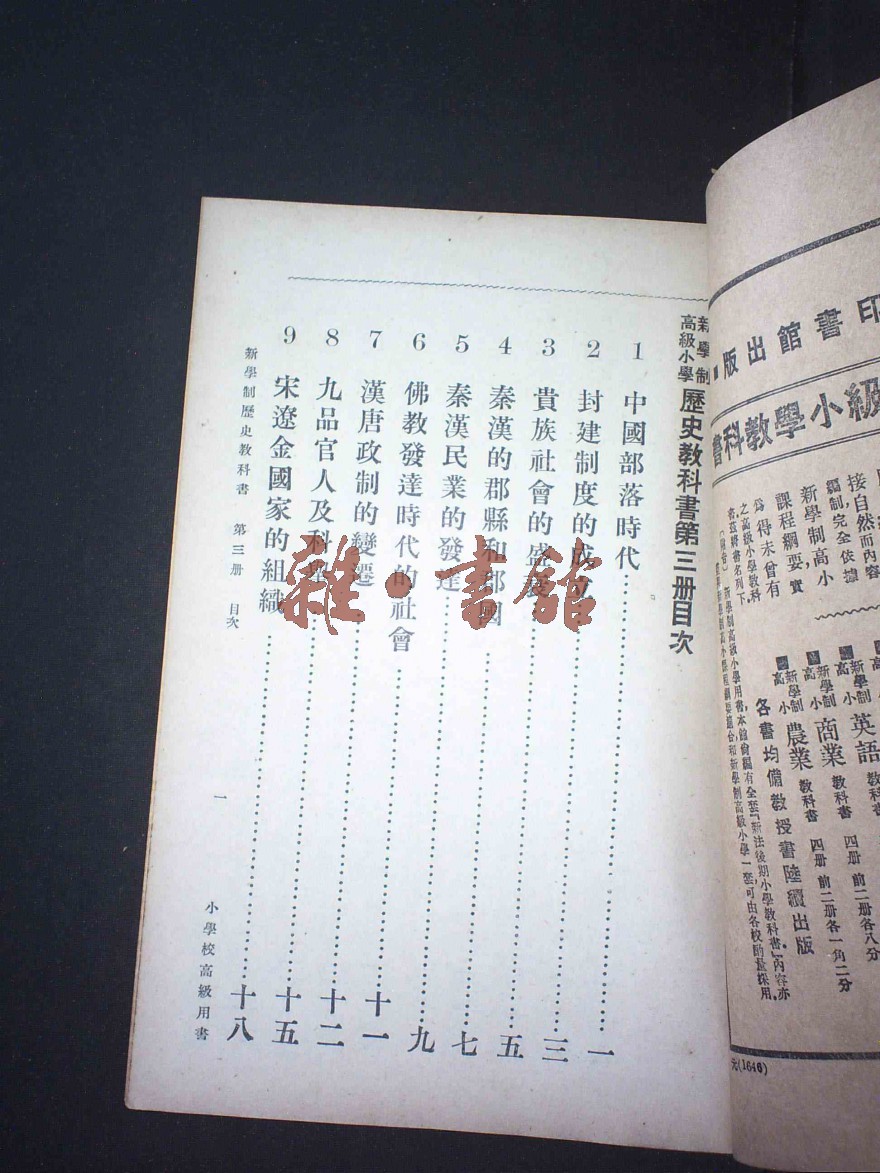 印書館出版
級小學教科書
接自然而內容
編制,完全依據
新學制高小
課程綱要,實
爲得未曾有
之高級小學教科
書茲將書名列下
新學制高小 英語 教科書
新學制高小 商業 教科書 四册 前二册各一角二分
新學制高小 農業 教科書 四册 前二册各八分
各書均備教授書陸續出版
元(1646)
新學制高級小學 歷史教科書第三册目次
1 中國部落時代 一
2 封建制度的成立 三
3 貴族社會的盛衰 五
4 秦漢的郡縣和郡國 七
5 秦漢民業的發達 九
6 佛教發達時代的社會 十一
7 漢唐政制的變遷 十二
8 九品官人及科舉 十五
9 宋遼金國家的組織 十八
新學制歷史教科書 第三册 目次 一 小學校高級用書
雜·書館